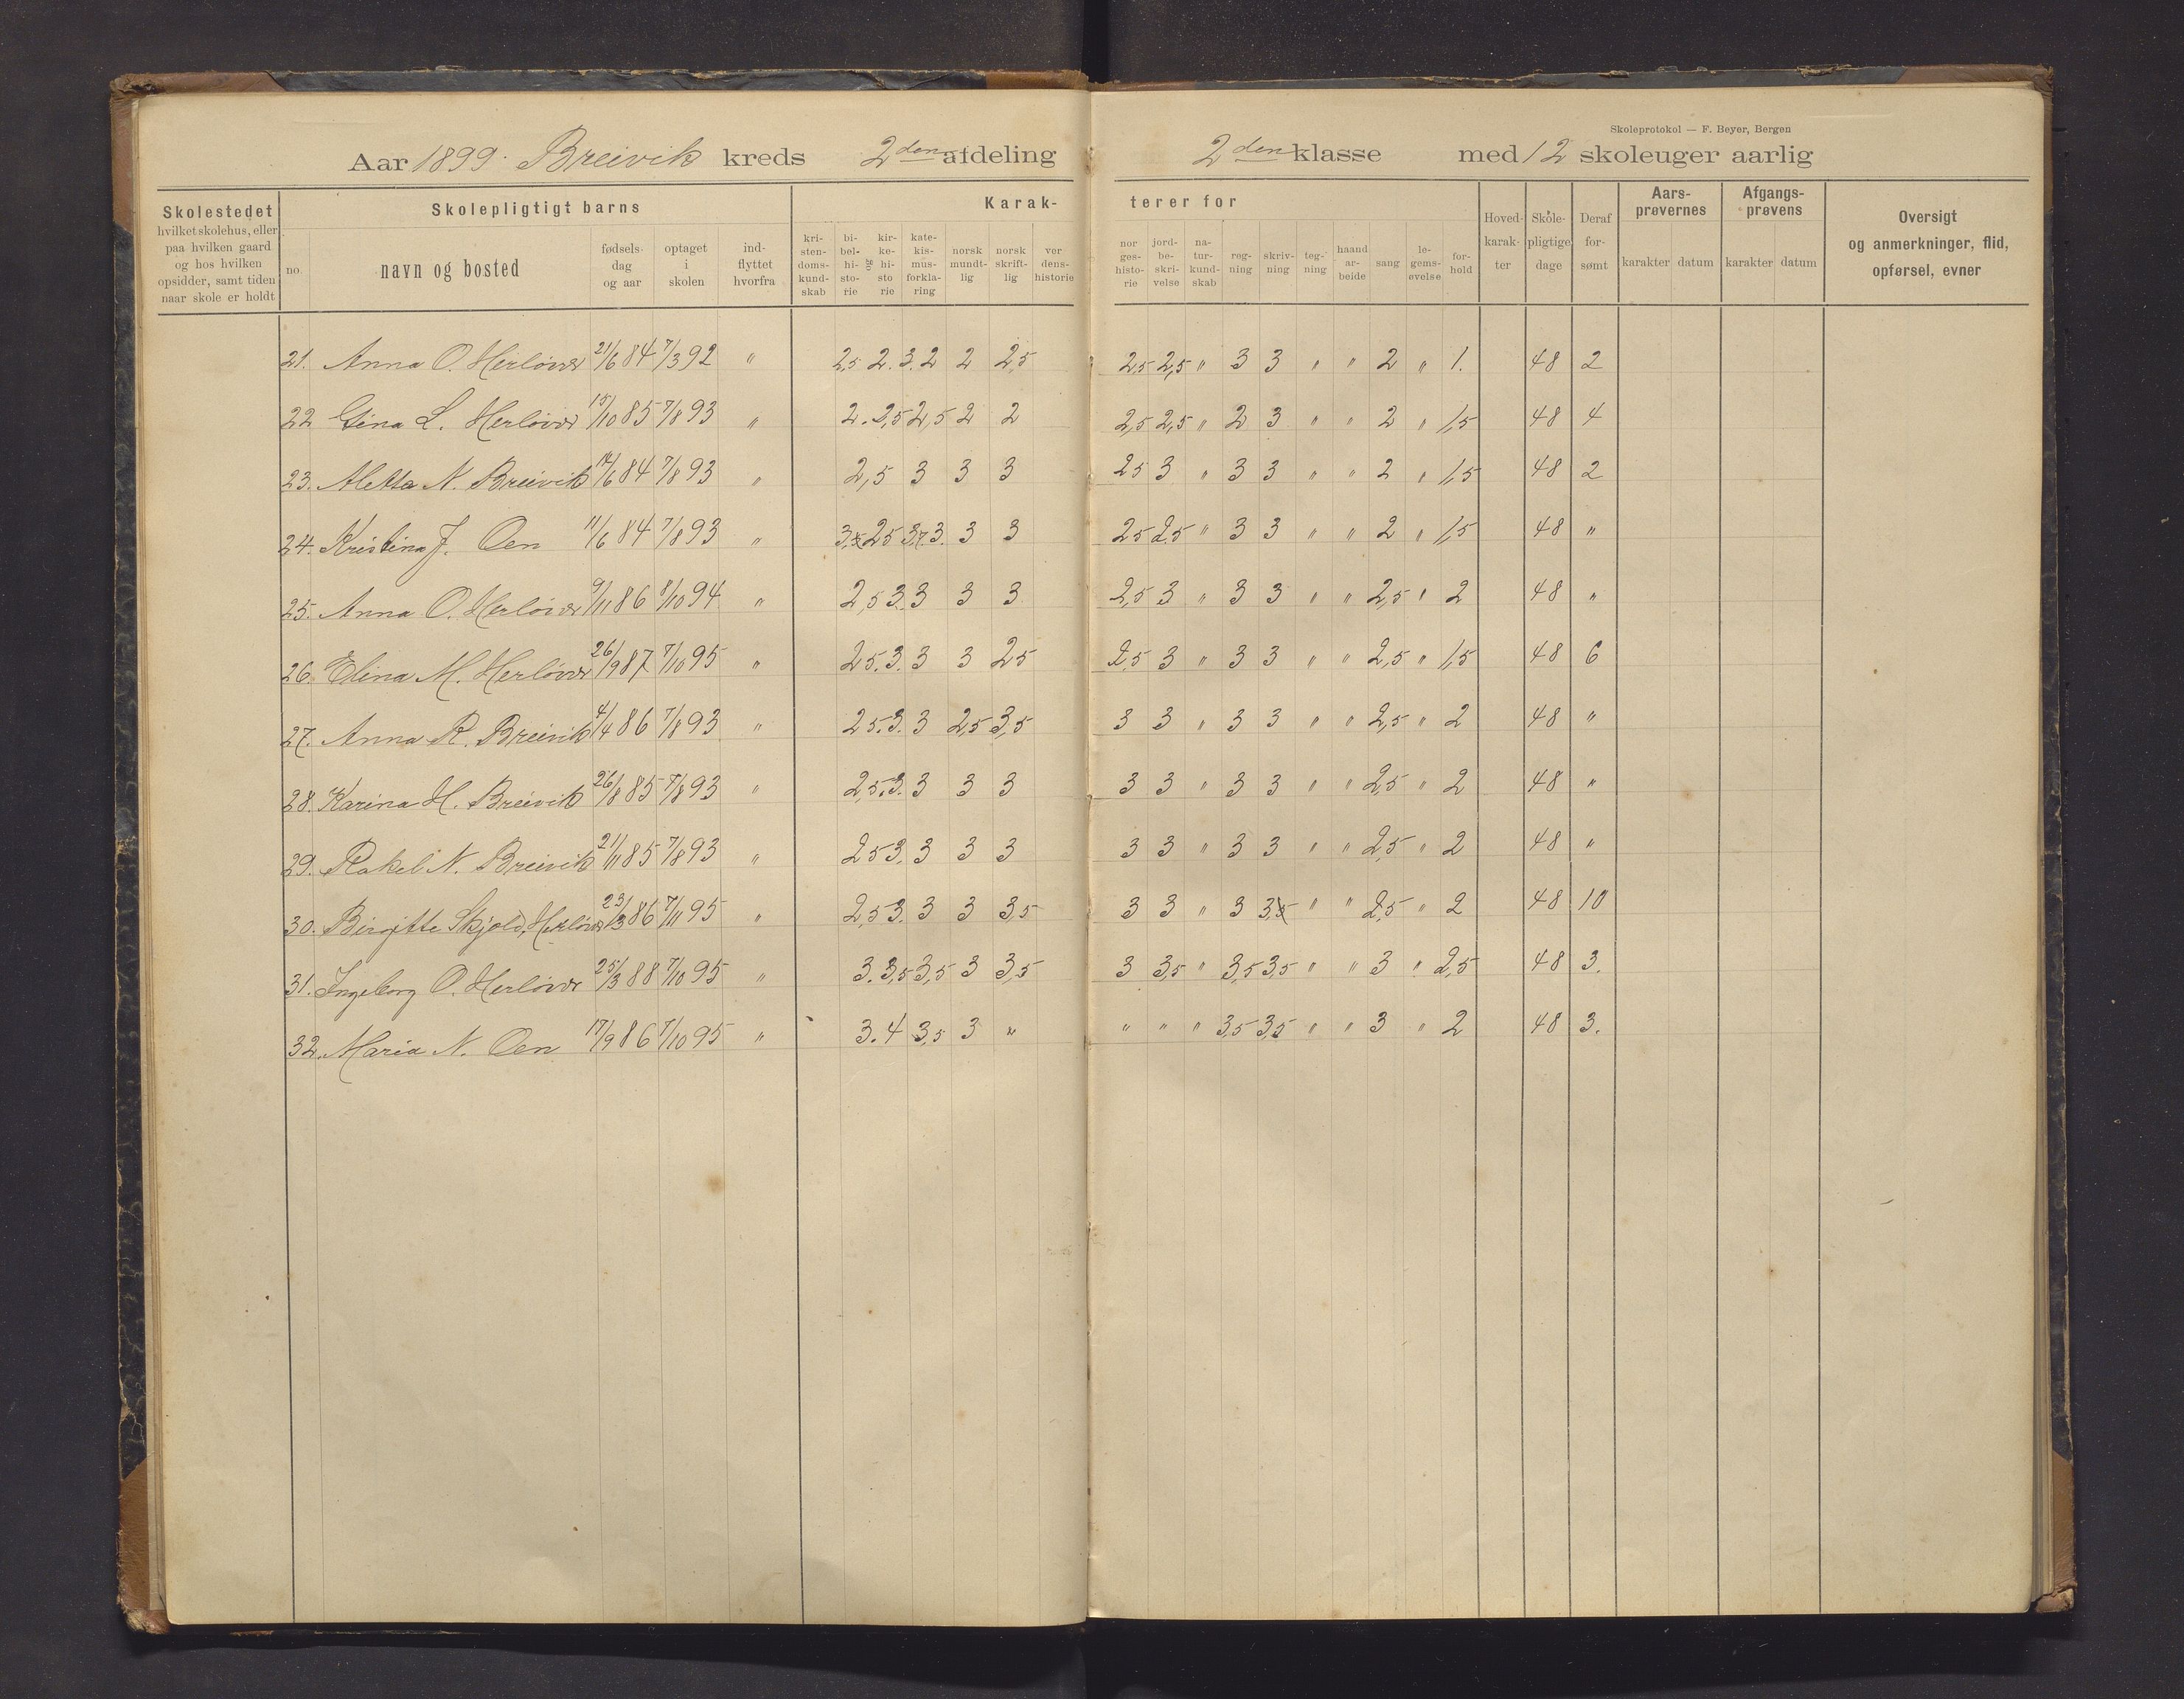 Skoleprotokol — F. Beyer, Bergen
Aar 1899. Breivik kreds 2den afdeling 2den klasse med 12 skoleuger aarlig
Skolestedet hvilket skolehus, eller paa hvilken gaard og hos hvilken opsidder, samt tiden naar skole er holdt
Skolepligtigt barns
no. navn og bosted fødselsdag og aar optaget i skolen indflyttet hvorfra
Karakterer for
kristendomskundskab bibelhistorie og kirkehistorie katekismusforklaring norsk mundtlig norsk skriftlig verdenshistorie
norgeshistorie jordbeskrivelse naturkundskab regning skrivning tegning haandarbeide sang legemsøvelse forhold
Hovedkarakter Skolepligtige dage Deraf forsømt
Aarsprøvernes karakter datum
Afgangsprøvens karakter datum
Oversigt og anmerkninger, flid, opførsel, evner
21. Anna O. Herløver 21/6 84 7/3 92 " 2,5 2. 3. 2 2 2,5 2,5 2,5 " 3 3 " " 2 " 1. 48 2
22 Gina L. Herløver 15/10 85 7/8 93 " 2. 2,5 2,5 2 2 2,5 2,5 " 2 3 " " 2 " 1,5 48 4
23. Aletta N. Breivik 14/6 84 7/8 93 " 2,5 3 3 3 25 3 " 3 3 " " 2 " 1,5 48 2
24. Kristina J. Oen 11/6 84 7/8 93 " 25 3 3 3 25 2.5 " 3 3 " " 2 " 1,5 48 "
25. Anna O. Herløver 9/11 86 8/10 94 " 2,5 3. 3 3 3 2,5 3 " 3 3 " " 2,5 " 2 48 "
26. Elina M. Herløver 26/9 87 7/10 95 " 25. 3. 3 3 25 2,5 3 " 3 3 " " 2,5 " 1,5 48 6
27. Anna R. Breivik 4/4 86 7/8 93 " 25. 3. 3 2,5 3,5 3 3 " 3 3 " " 2,5 " 2 48 "
28. Karina H. Breivik 26/8 85 7/8 93 " 2,5. 3. 3 3 3 3 3 " 3 3 " " 2,5 " 2 48 "
29. Rakel N. Breivik 21/11 85 7/8 93 " 25 3. 3 3 3 3 3 " 3 3 " " 2,5 " 2 48 "
30. Birgitte Skjold, Herløver 23/3 86 7/11 95 " 2,5 3. 3 3 35 3 3 " 3 3 " " 2,5 " 2 48 10
31. Ingeborg O. Herløver 25/3 88 7/10 95 " 3. 3,5 3,5 3 3,5 3 3,5 " 3,5 35 " " 3 " 2,5 48 3.
32. Maria N. Oen 17/9 86 7/10 95 " 3. 4 3,5 3 " " " " 3,5 3,5 " " 3 " 2 48 3.